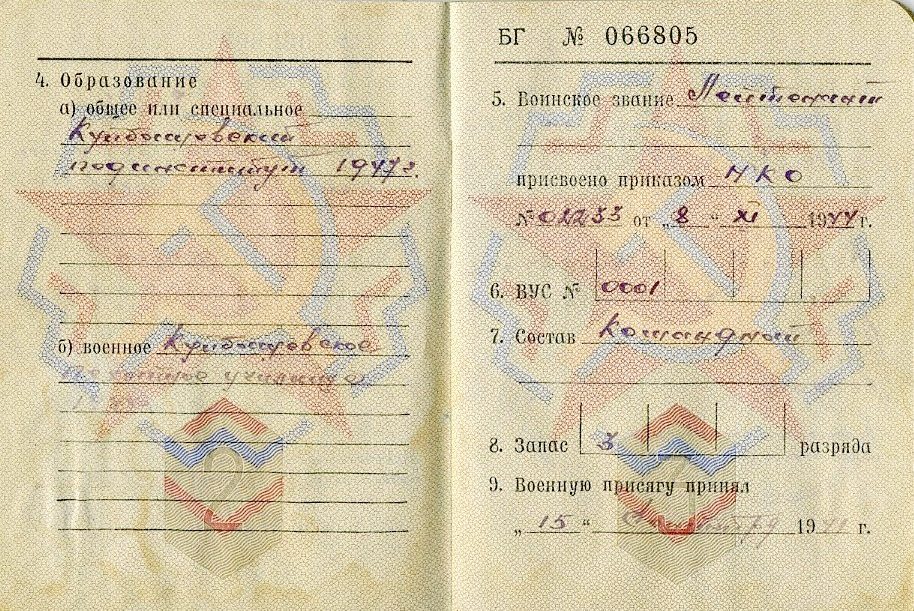 4. Образование
а) общее или специальное
Куйбышевский
пединститут 1947г.
б) военное Куйбышевское
пехотное училище
БГ № 066805
5. Воинское звание Лейтенант
присвоено приказом НКО
№ 02233 от „8“ XI 1944 г.
6. ВУС № 0001
7. Состав командный
8. Запас 3 разряда
9. Военную присягу принял
„15“ 19 г.